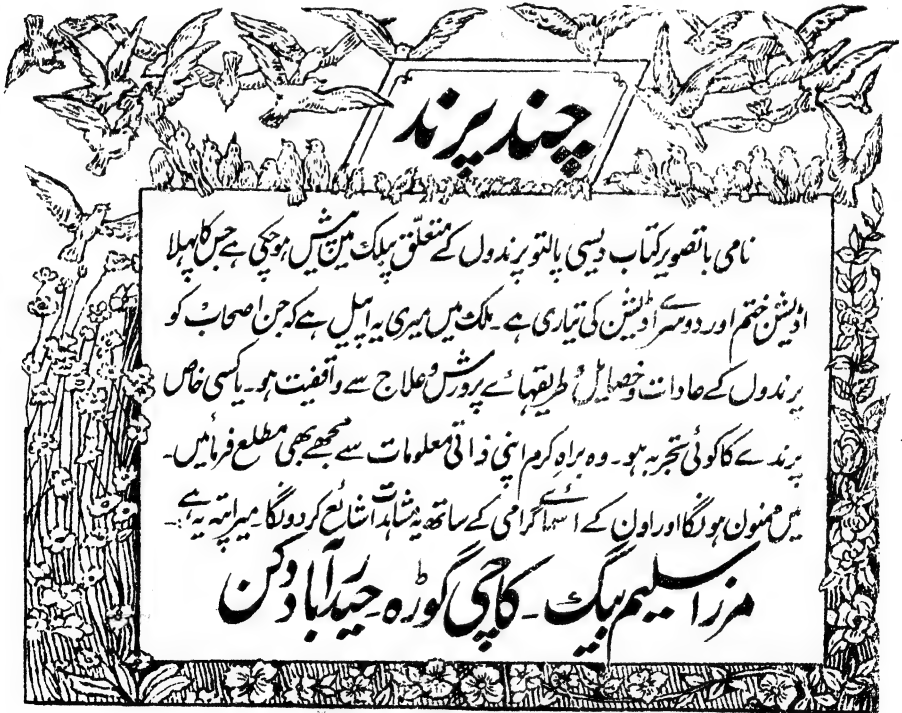 چند پرند
نامی باتصویر کتاب دیسی پالتو پرندوں کے متعلّق پبلک مین پیش ہوچکی ہے جس کا پہلا
اڈیشن ختم اور دوسرے اڈیشن کی تیاری ہے۔ ملک میں میری یہ اپیل ہے کہ جن اصحاب کو
پرندوں کے عادات و خصایل و طریقہائے پرورش و علاج سے واقفیت ہو۔ یا کسی خاص
پرندے کا کوئی تجربہ ہو۔ وہ براہ کرم اپنی ذاتی معلومات سے مجھے بھی مطلع فرمائیں۔
میں ممنون ہونگا اور اون کے اسمائے گرامی کے ساتھ یہ مشاہدات شائع کردونگا۔ میرا پتہ یہ ہے:۔
مرزا سلیم بیگ۔ کاچی گوڑہ۔ حیدرآباد دکن